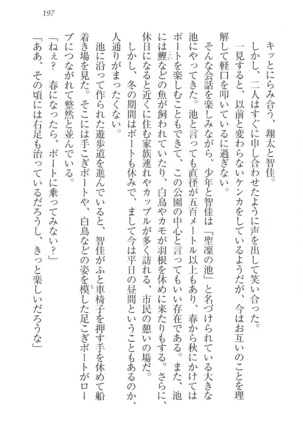 197
キッとにらみ合う、翔太と智佳。
しかし、二人はすぐに申し合わせたように声を出して笑い合った。
一見すると、以前と変わらないケンカをしているようだが、今はお互いのことを理
解して軽口を叩いているに過ぎない。
そんな会話を楽しみながら、少年と智佳は「聖凜の池」と名づけられている大きな
池にやってきた。池と言っても直径が五百メートル以上もあり、春から秋にかけては
ボートを楽しむこともできて、この公園の中心と言ってもいい存在である。また、池
には鯉などの魚が飼われていたり、白鳥やカモが羽根を休めに来たりもするため、
休日になると近くに住む家族連れやカップルが多く訪れる、市民の憩いの場だ。
しかし、冬の期間はボートも休みで、まして今は平日の昼間ということもあるのか、
人通りがまったくない。
池に沿って作られた遊歩道を進んでいると、智佳がふと車椅子を押す手を休めて船
着き場を見た。そこには手こぎボートや、白鳥などの姿を模した足こぎボートがロー
プにつながれて整然と並んでいる。
「ねぇ？　春になったら、ボートに乗ってみない？」
「ああ、その頃には右足も治っているだろうし、きっと楽しいだろうな」